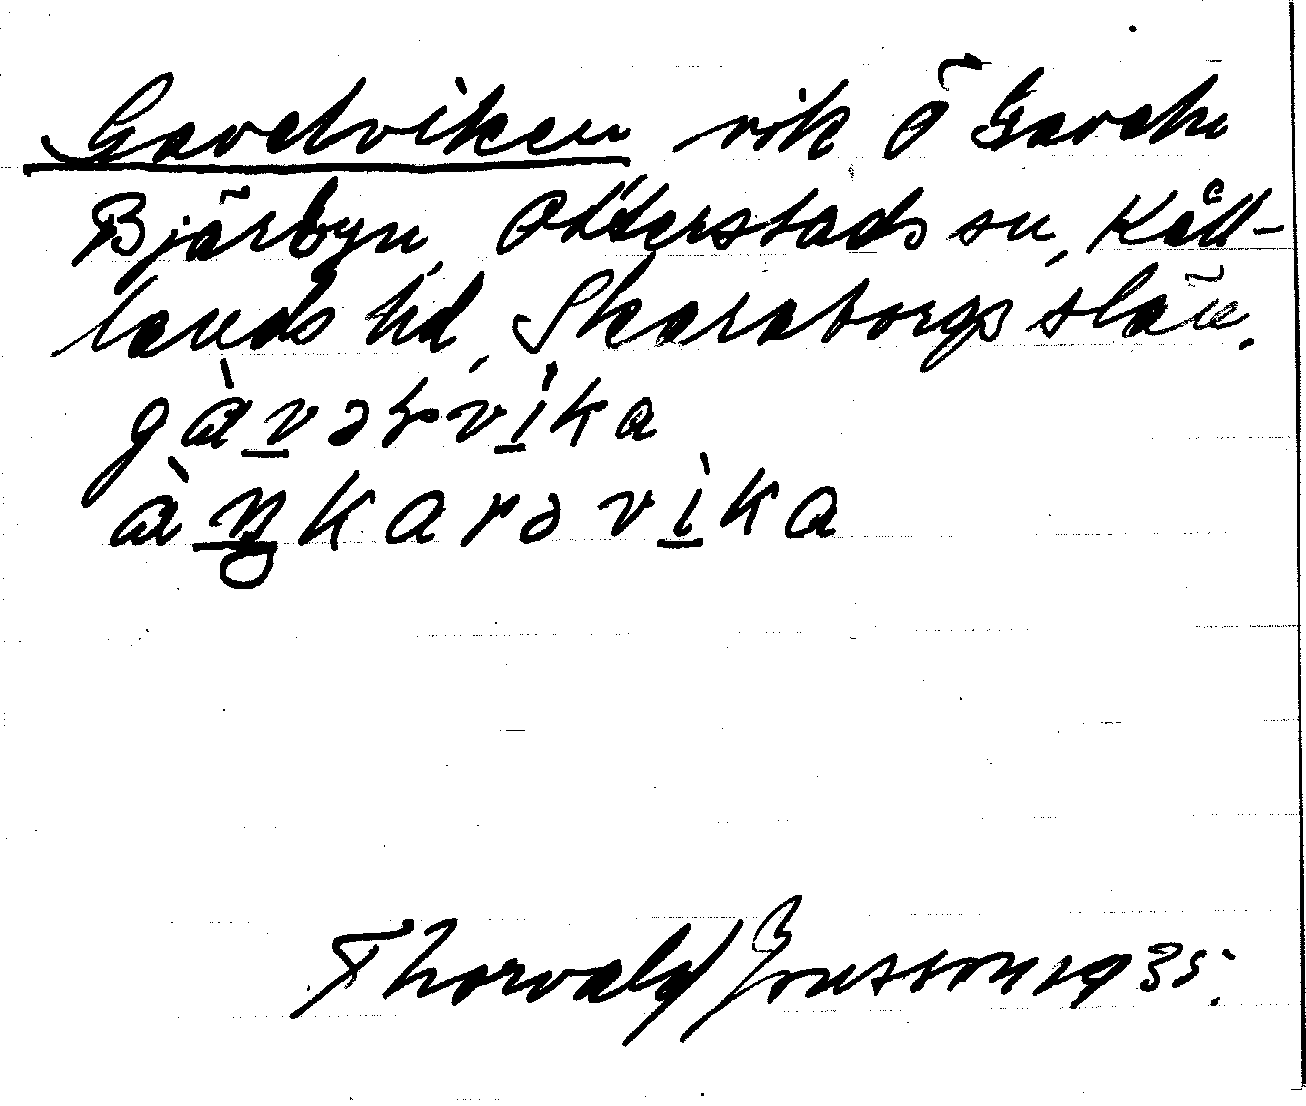 Gavelviken vik Ö Gaveln
Bjärbyn, Otterstads sn, Kåll-
lands hd, Skaraborgs län.
gàvərvìka
àŋkarəvìka
Thorvald Jonsson 1935.